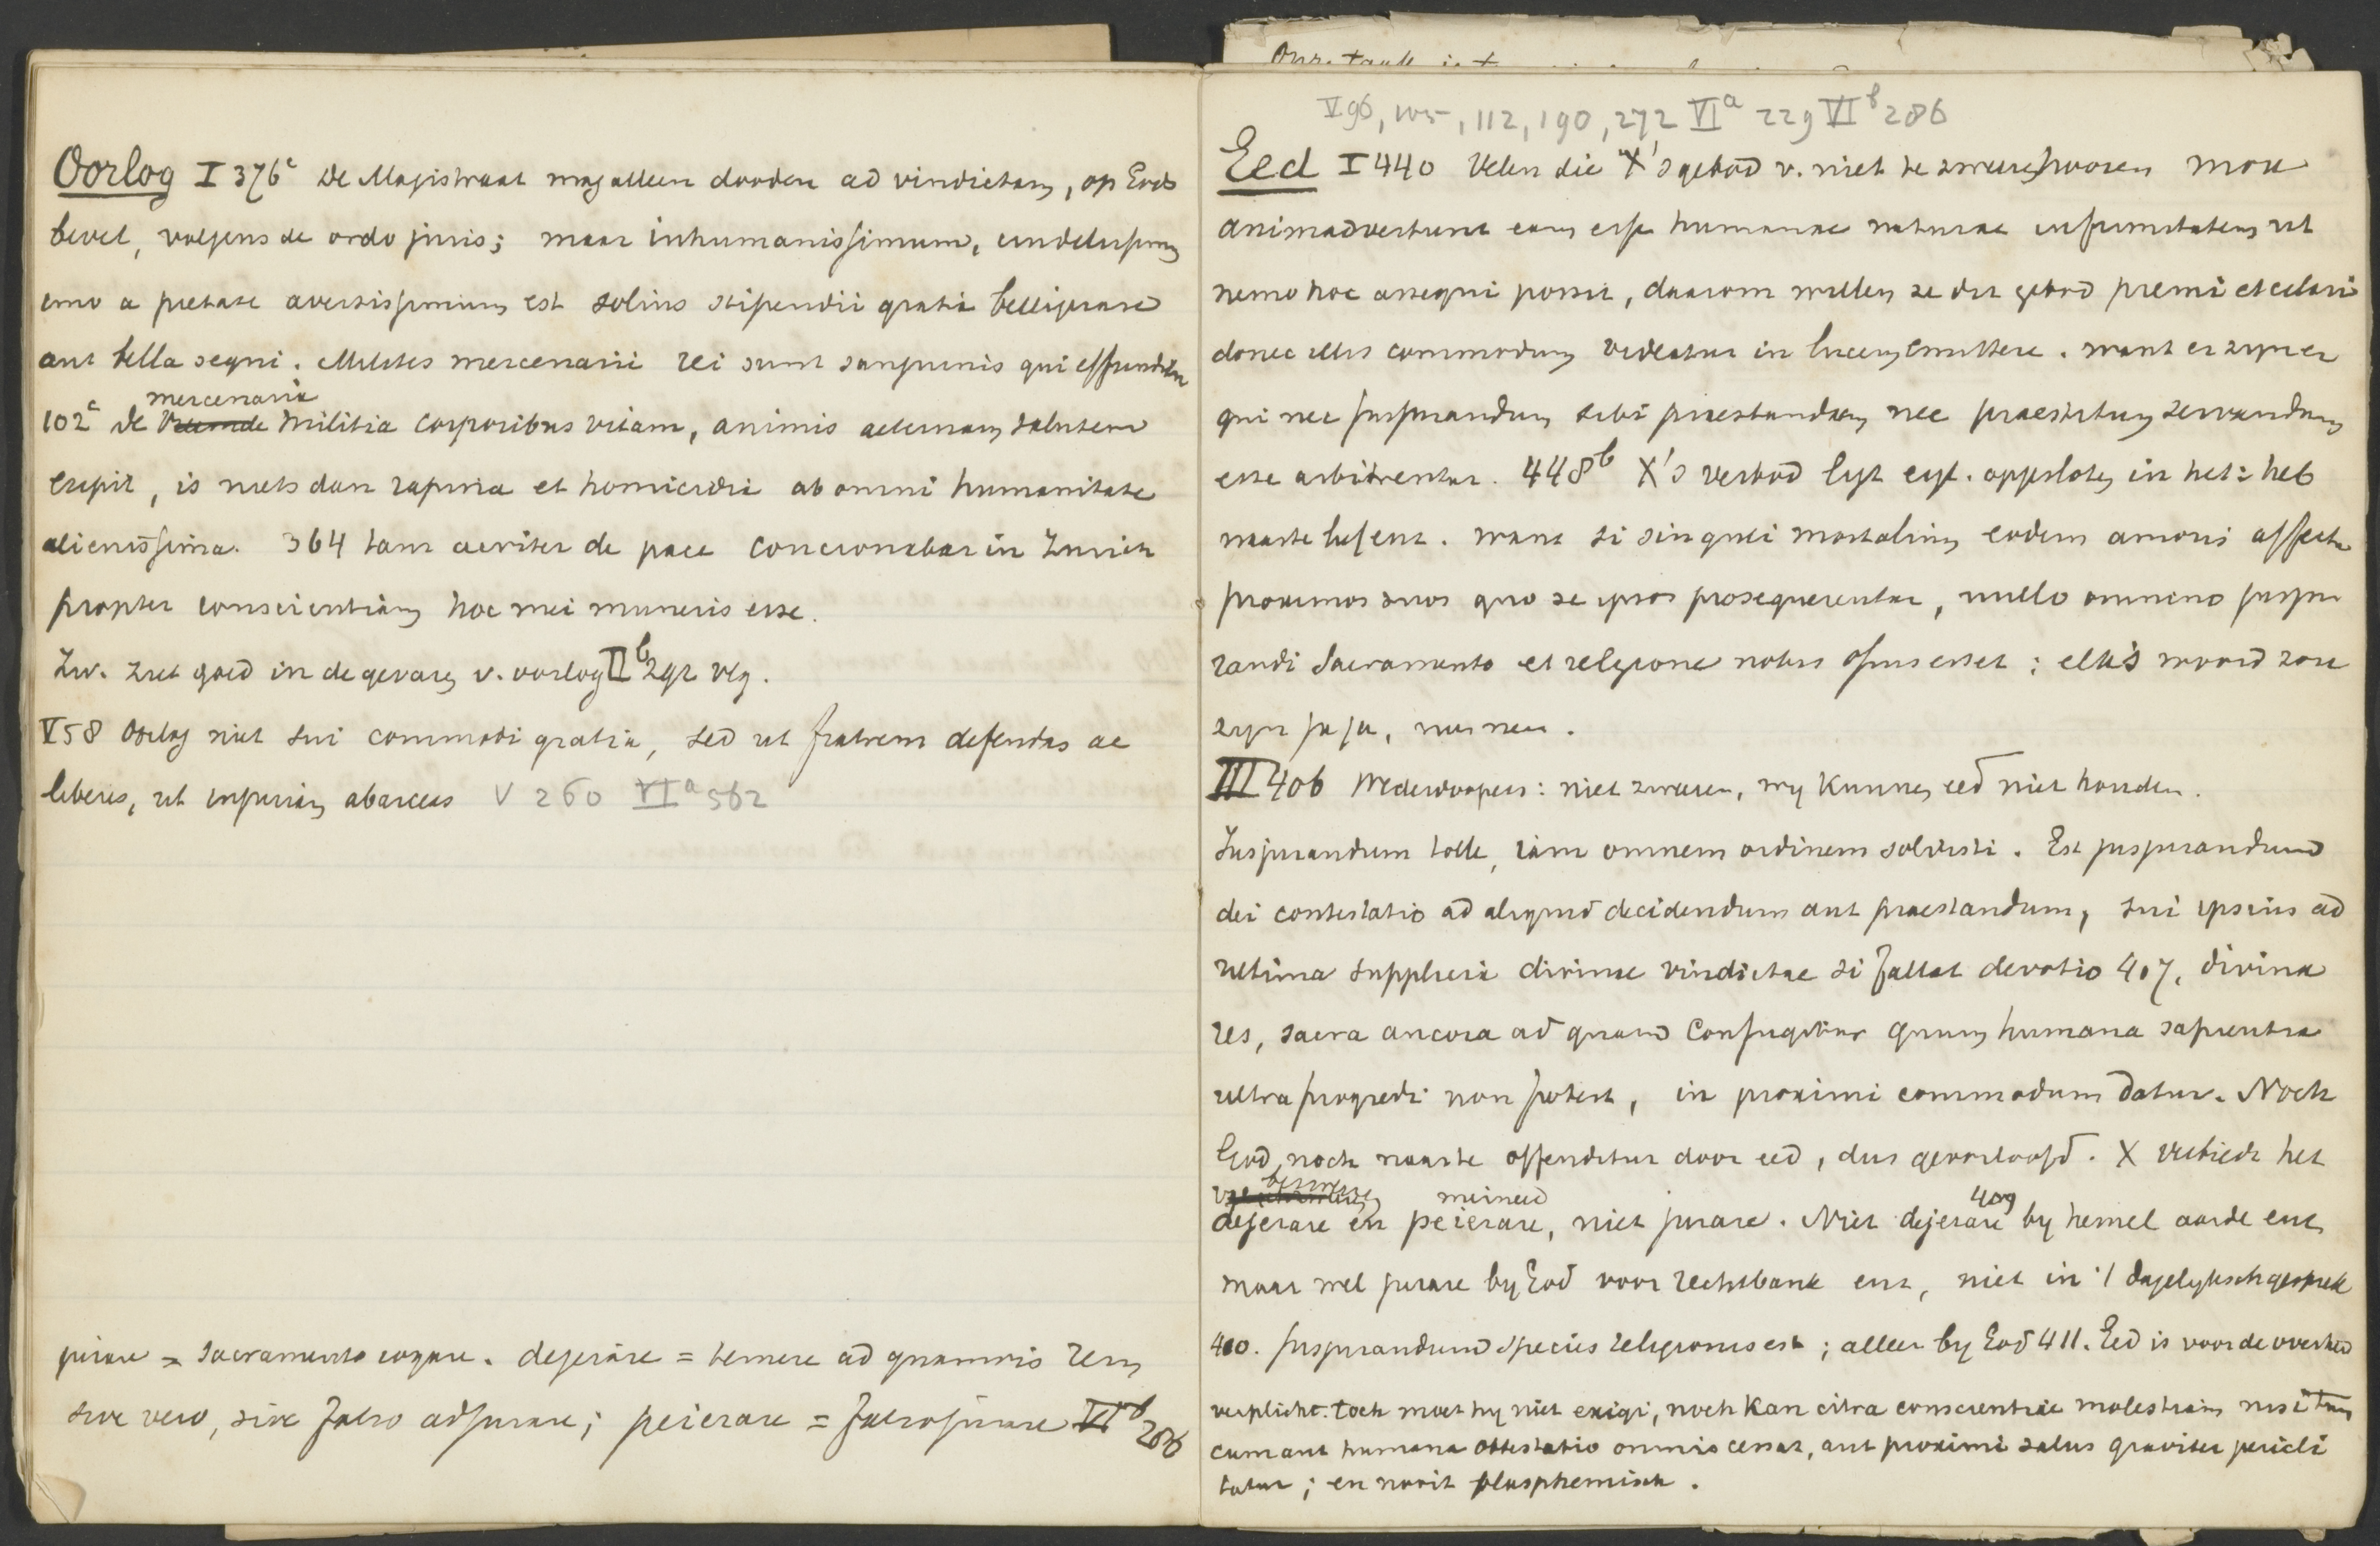 Oorlog I 376c de Magistraat mag alleen dooden ad vindictam, op Gods
bevel, volgens de ordo juris; maar inhumanissimum,
imo a pietate aversissimum est solius stipendii gratia belligerare
aut bella sequi. Milites mercenarii rei sunt sanguinis qui effunditur
mercenaria
102c de vreemde militia corporibus vitam, animis aeternam salutem
eripit, is niets dan rapina et homicidia ab omni humanitate
alienissima. 364 tam acriter de pace concionabar in Zurich
propter conscientiam hoc mei muneris esse.
Zw. ziet goed in de gevaren v. oorlog IIb 292 vlg.
V 58 Oorlog niet sui commodi gratia, sed ut fratrem defendas ac
liberes, ut injuriam abarceas V 260 VIa 562
jurare = sacramento cogere. dejerare = temere ad quamvis rem
sive vero, sive falso adjurare; peierare = falso jurare VIb 206
V 96, 105, 112, 190, 272 VIa 229 VIb 286
Eed I 440 Velen die X's gebod v. niet te zweren hooren mox
animadvertunt eam esse humanae naturae infirmitatem ut
nemo hoc assequi possit, daarom willen ze dit gebod premi et celari
donec illis commodum videatur in lucem emittere. want er zijn er
qui nec jusjurandum sibi praestandum nec praestitum servandum
esse arbitrentur. 448b X's verbod ligt eig. opgesloten in het: heb
naaste lief enz. want si singuli mortalium eodem amoris affectu
proximos suos quo se ipsos prosequerentur, nullo omnino jusju
randi sacramento et religione nobis opus esset; elk's woord zou
zijn ja ja, nee nee.
III 406 Wederdoopers: niet zweren, wij kunnen eed niet houden.
Jusjurandum tolle, iam omnem ordinem solvisti. Est jusjurandum
dei contestatio ad aliquid decidendum aut praestandum, sui ipsius ad
ultima supplicia divinae vindictae si fallat devotio 407, divina
res, sacra ancora ad quam confugitur quum humana sapientia
ultra progredi non potest, in proximi commodum datur. Noch
God, noch naaste offenditur door eed, dus geoorloofd. X verbiedt het
meineed 409
dejerare en peierare, niet jurare. Niet dejerare by hemel aarde enz
maar wel jurare by God voor rechtbank enz, niet in 't dagelyksch gesprek
410. jusjurandum species religionis est; alleen by God 411. Eed is voor de overheid
verplicht. toch moet hy niet exigi, noch kan citra conscientiae molestiam nisi tum
cum aut humana attestatio omnis cessat, aut proximi salus graviter pericli
tatur; en nooit blasphemisch.